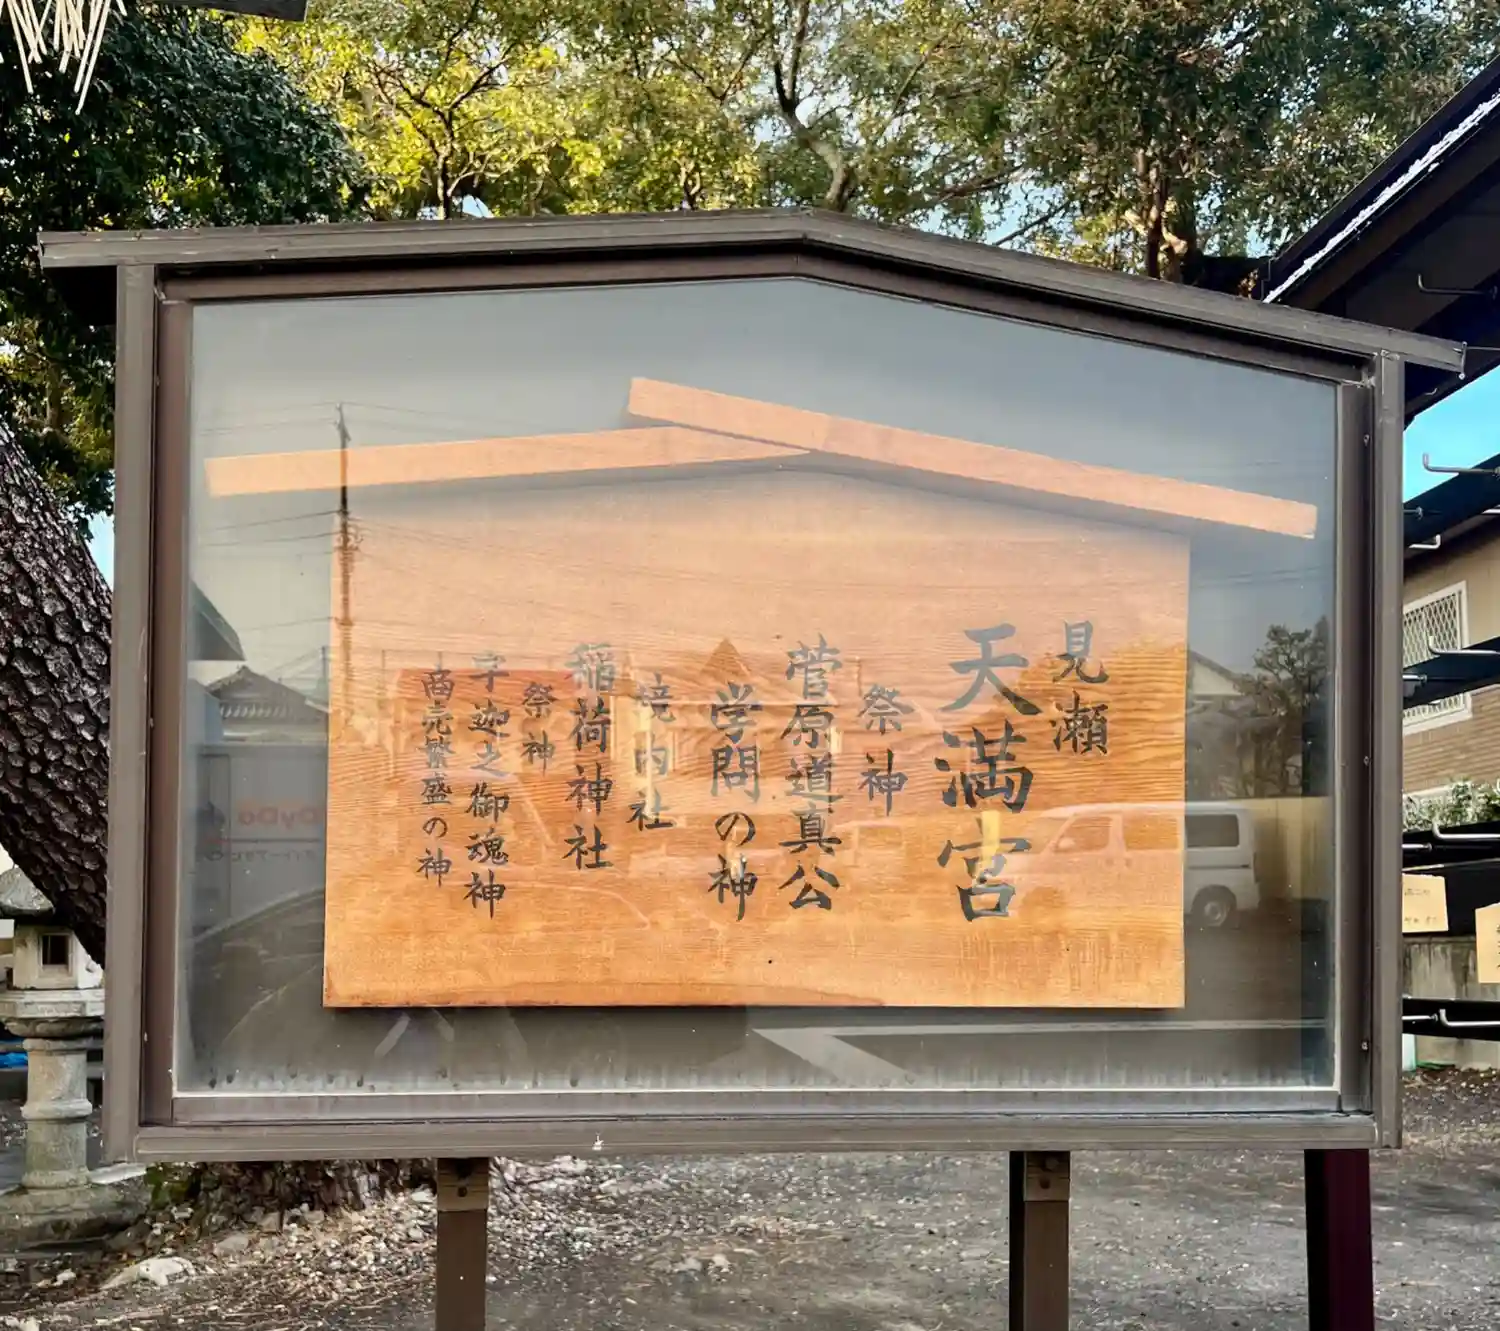 見瀬
天満宮
祭神
菅原道真公
学問の神
境内社
稲荷神社
祭神
宇迦之御魂神
商売繁盛の神